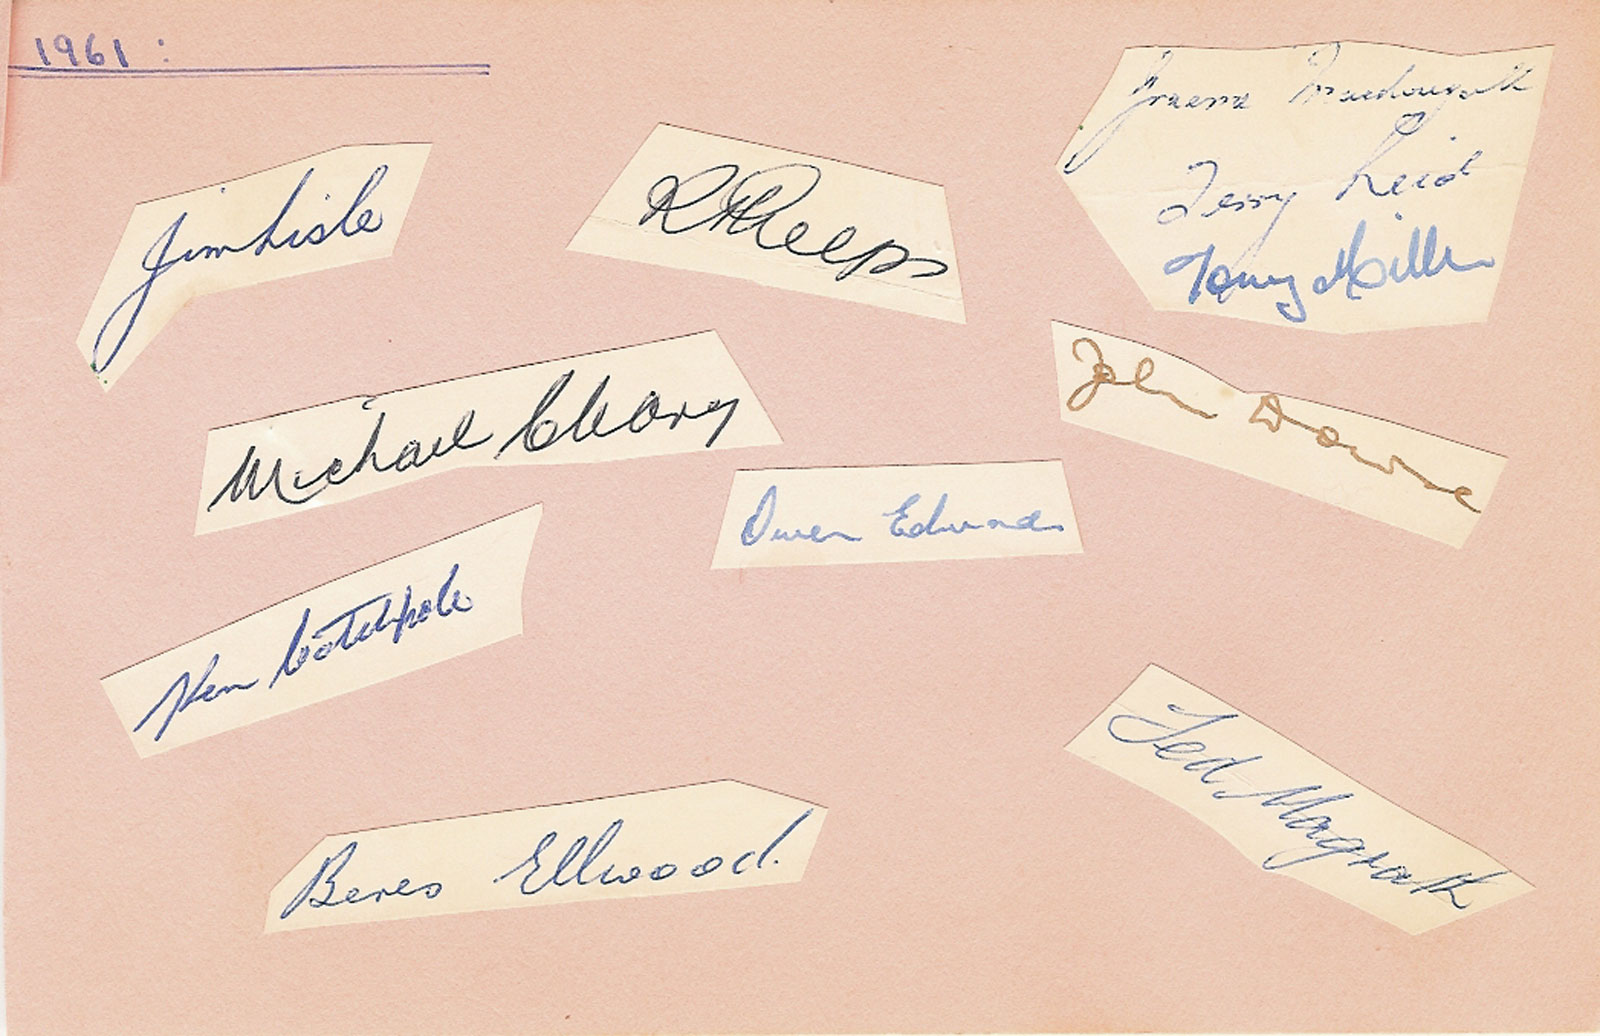 1961 :
Graeme Macdougall
Jim Lisle
R Phelps
Terry Reid
Tony Miller
Michael Cleary
John Dowse
Owen Edwards
Ken Catchpole
Ted Magrath
Beres Ellwood.